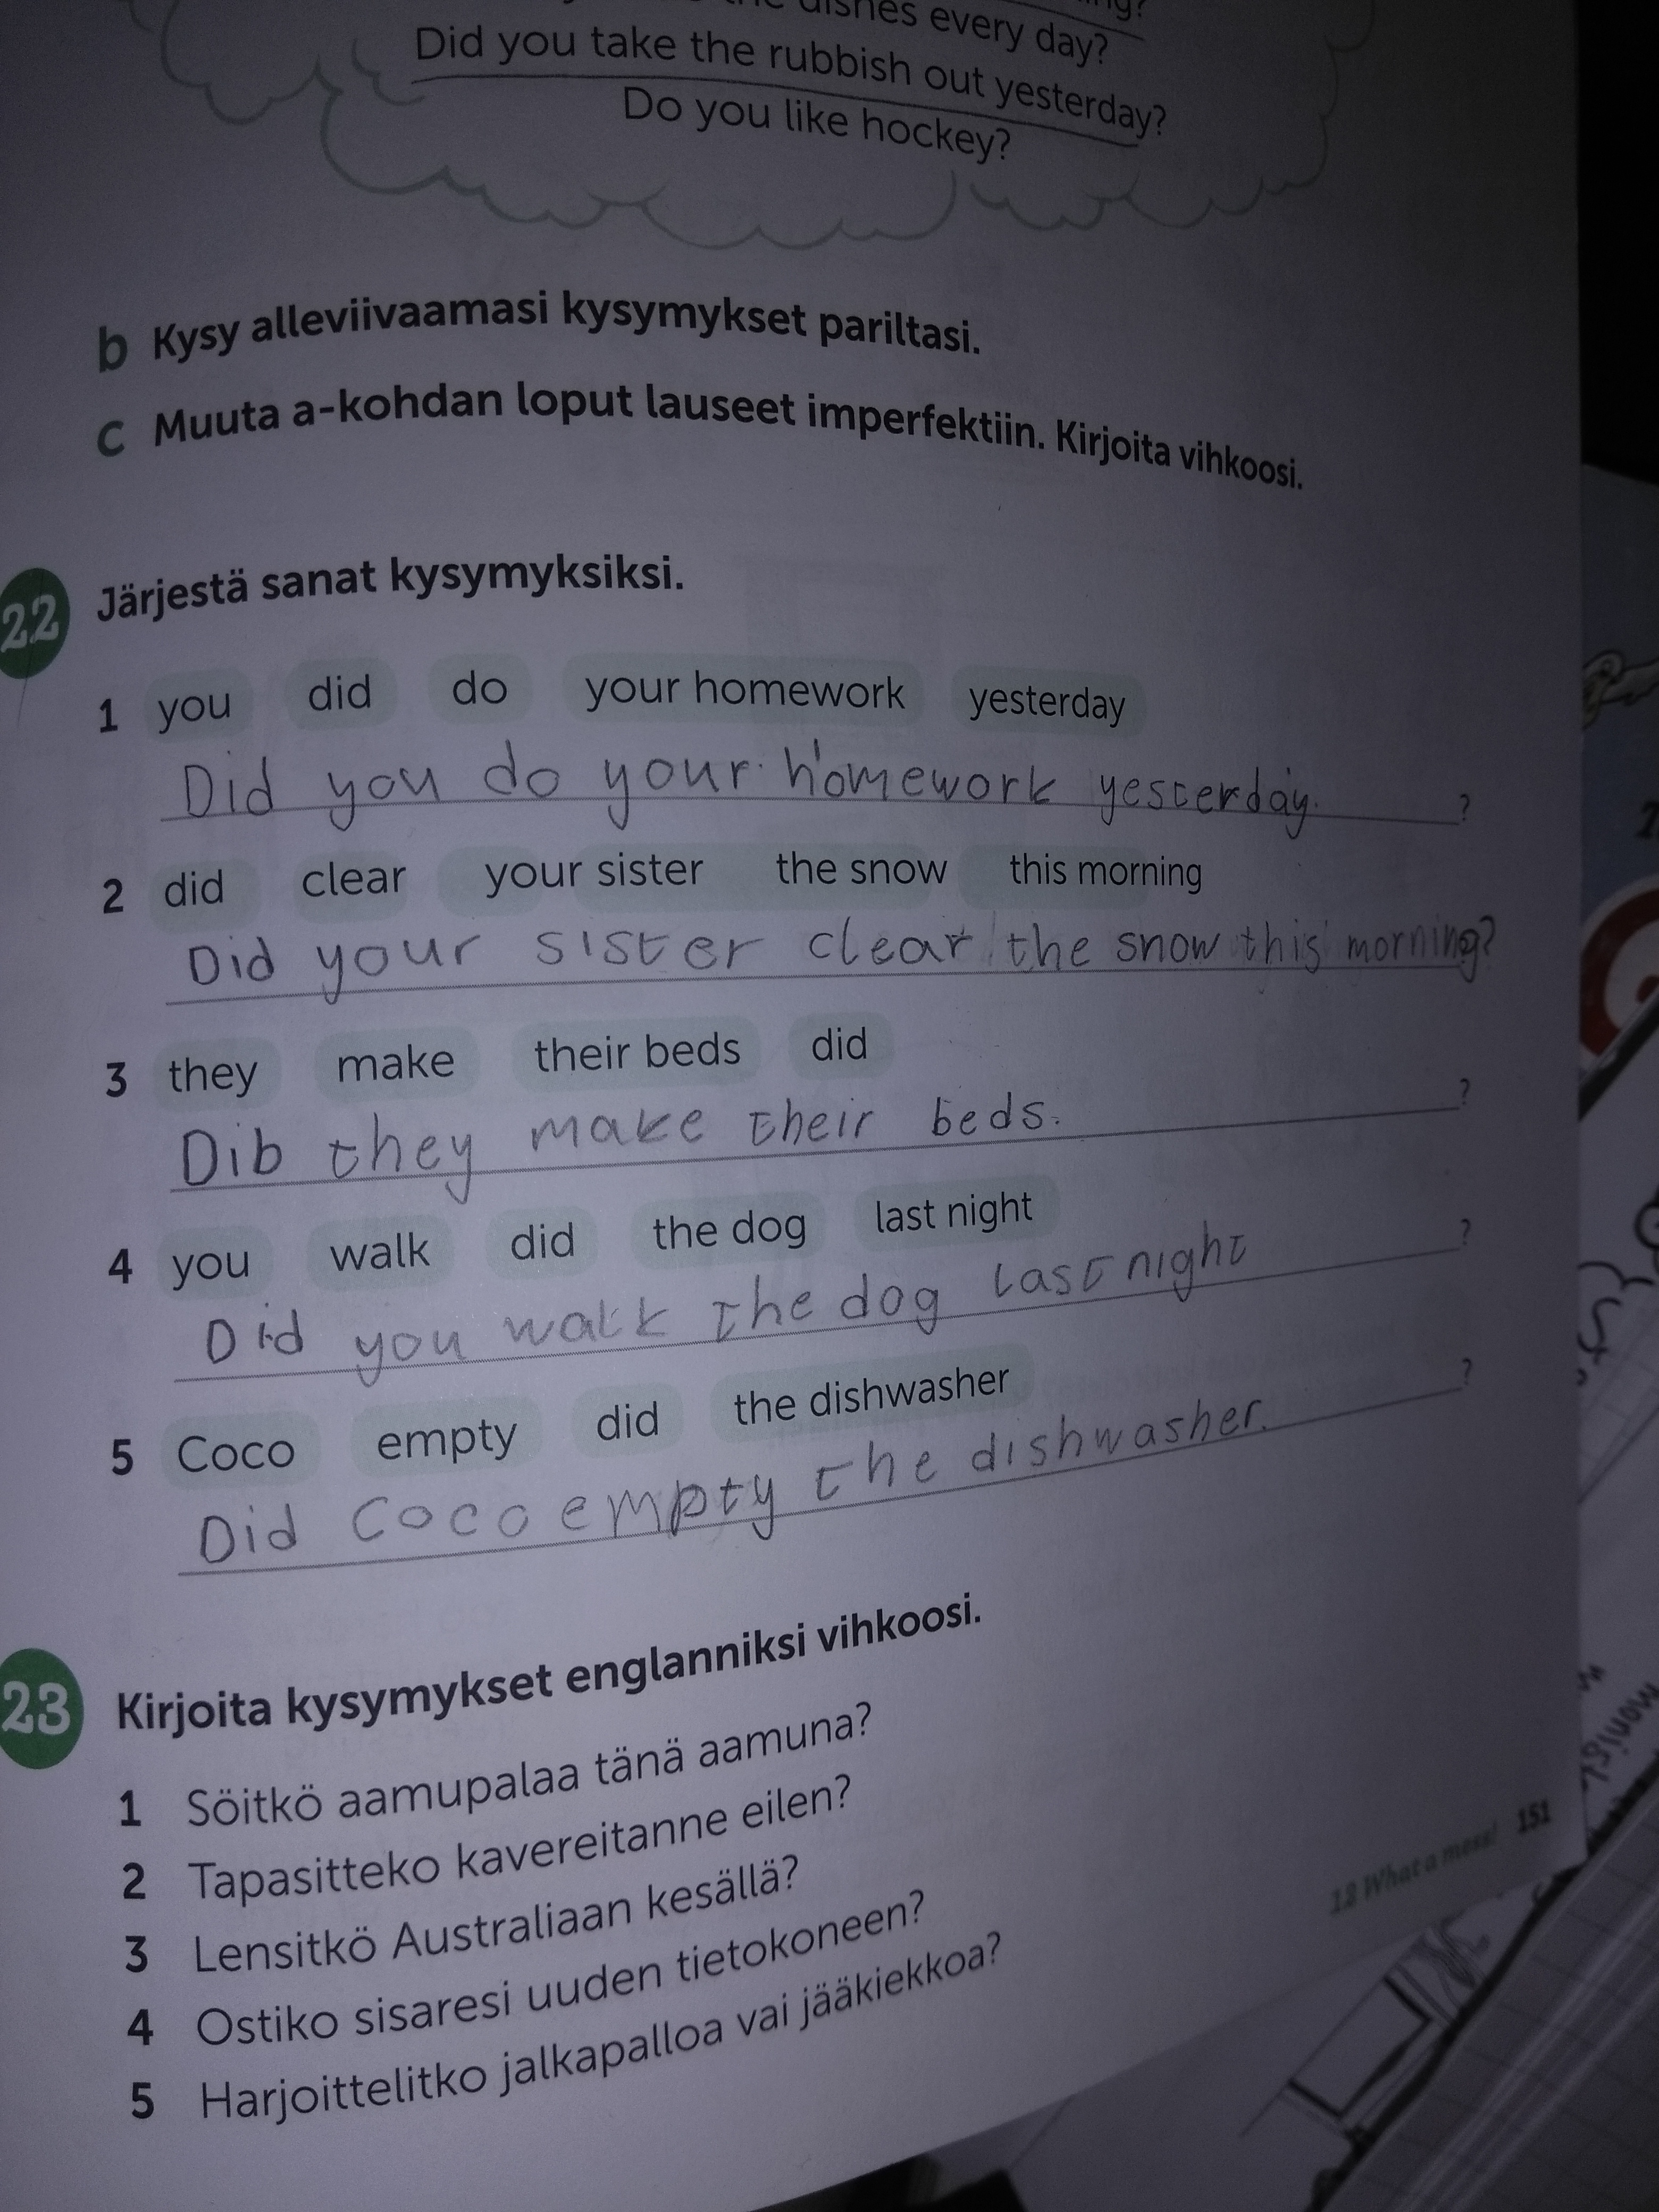 dishes every day?
Did you take the rubbish out yesterday?
Do you like hockey?
b Kysy alleviivaamasi kysymykset pariltasi.
c Muuta a-kohdan loput lauseet imperfektiin. Kirjoita vihkoosi.
22 Järjestä sanat kysymyksiksi.
1 you did do your homework yesterday
Did you do your homework yesterday. ?
2 did clear your sister the snow this morning
Did your sister clear the snow this morning?
3 they make their beds did
Dib they make their beds. ?
4 you walk did the dog last night
Did you walk the dog last night ?
5 Coco empty did the dishwasher
Did Coco empty the dishwasher. ?
23 Kirjoita kysymykset englanniksi vihkoosi.
1 Söitkö aamupalaa tänä aamuna?
2 Tapasitteko kavereitanne eilen?
3 Lensitkö Australiaan kesällä?
4 Ostiko sisaresi uuden tietokoneen?
5 Harjoittelitko jalkapalloa vai jääkiekkoa?
12 What a mess! 151